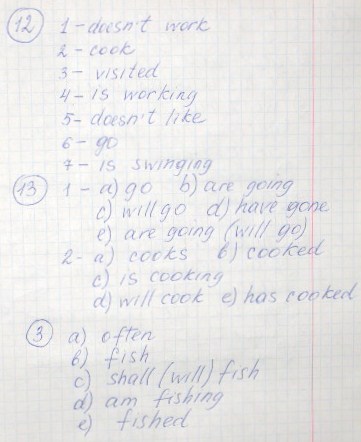 12 1 - doesn't work
2 - cook
3 - visited
4 - is working
5 - doesn't like
6 - go
7 - is swinging
13 1 - a) go b) are going
c) will go d) have gone
e) are going (will go)
2 - a) cooks b) cooked
c) is cooking
d) will cook e) has cooked
3 a) often
b) fish
c) shall (will) fish
d) am fishing
e) fished